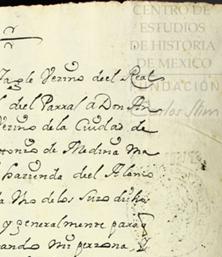 CENTRO DE
ESTUDIOS
DE HISTORIA
DE MEXICO
FUNDACIÓN
Carlos Slim
Vezino deel Real
del Parral a Don An
Vezino de la Ciudad de
de Medina Ma
hazienda del Alamo
la Uno de los Suso dichos
y generalmente para q
mi perzona,